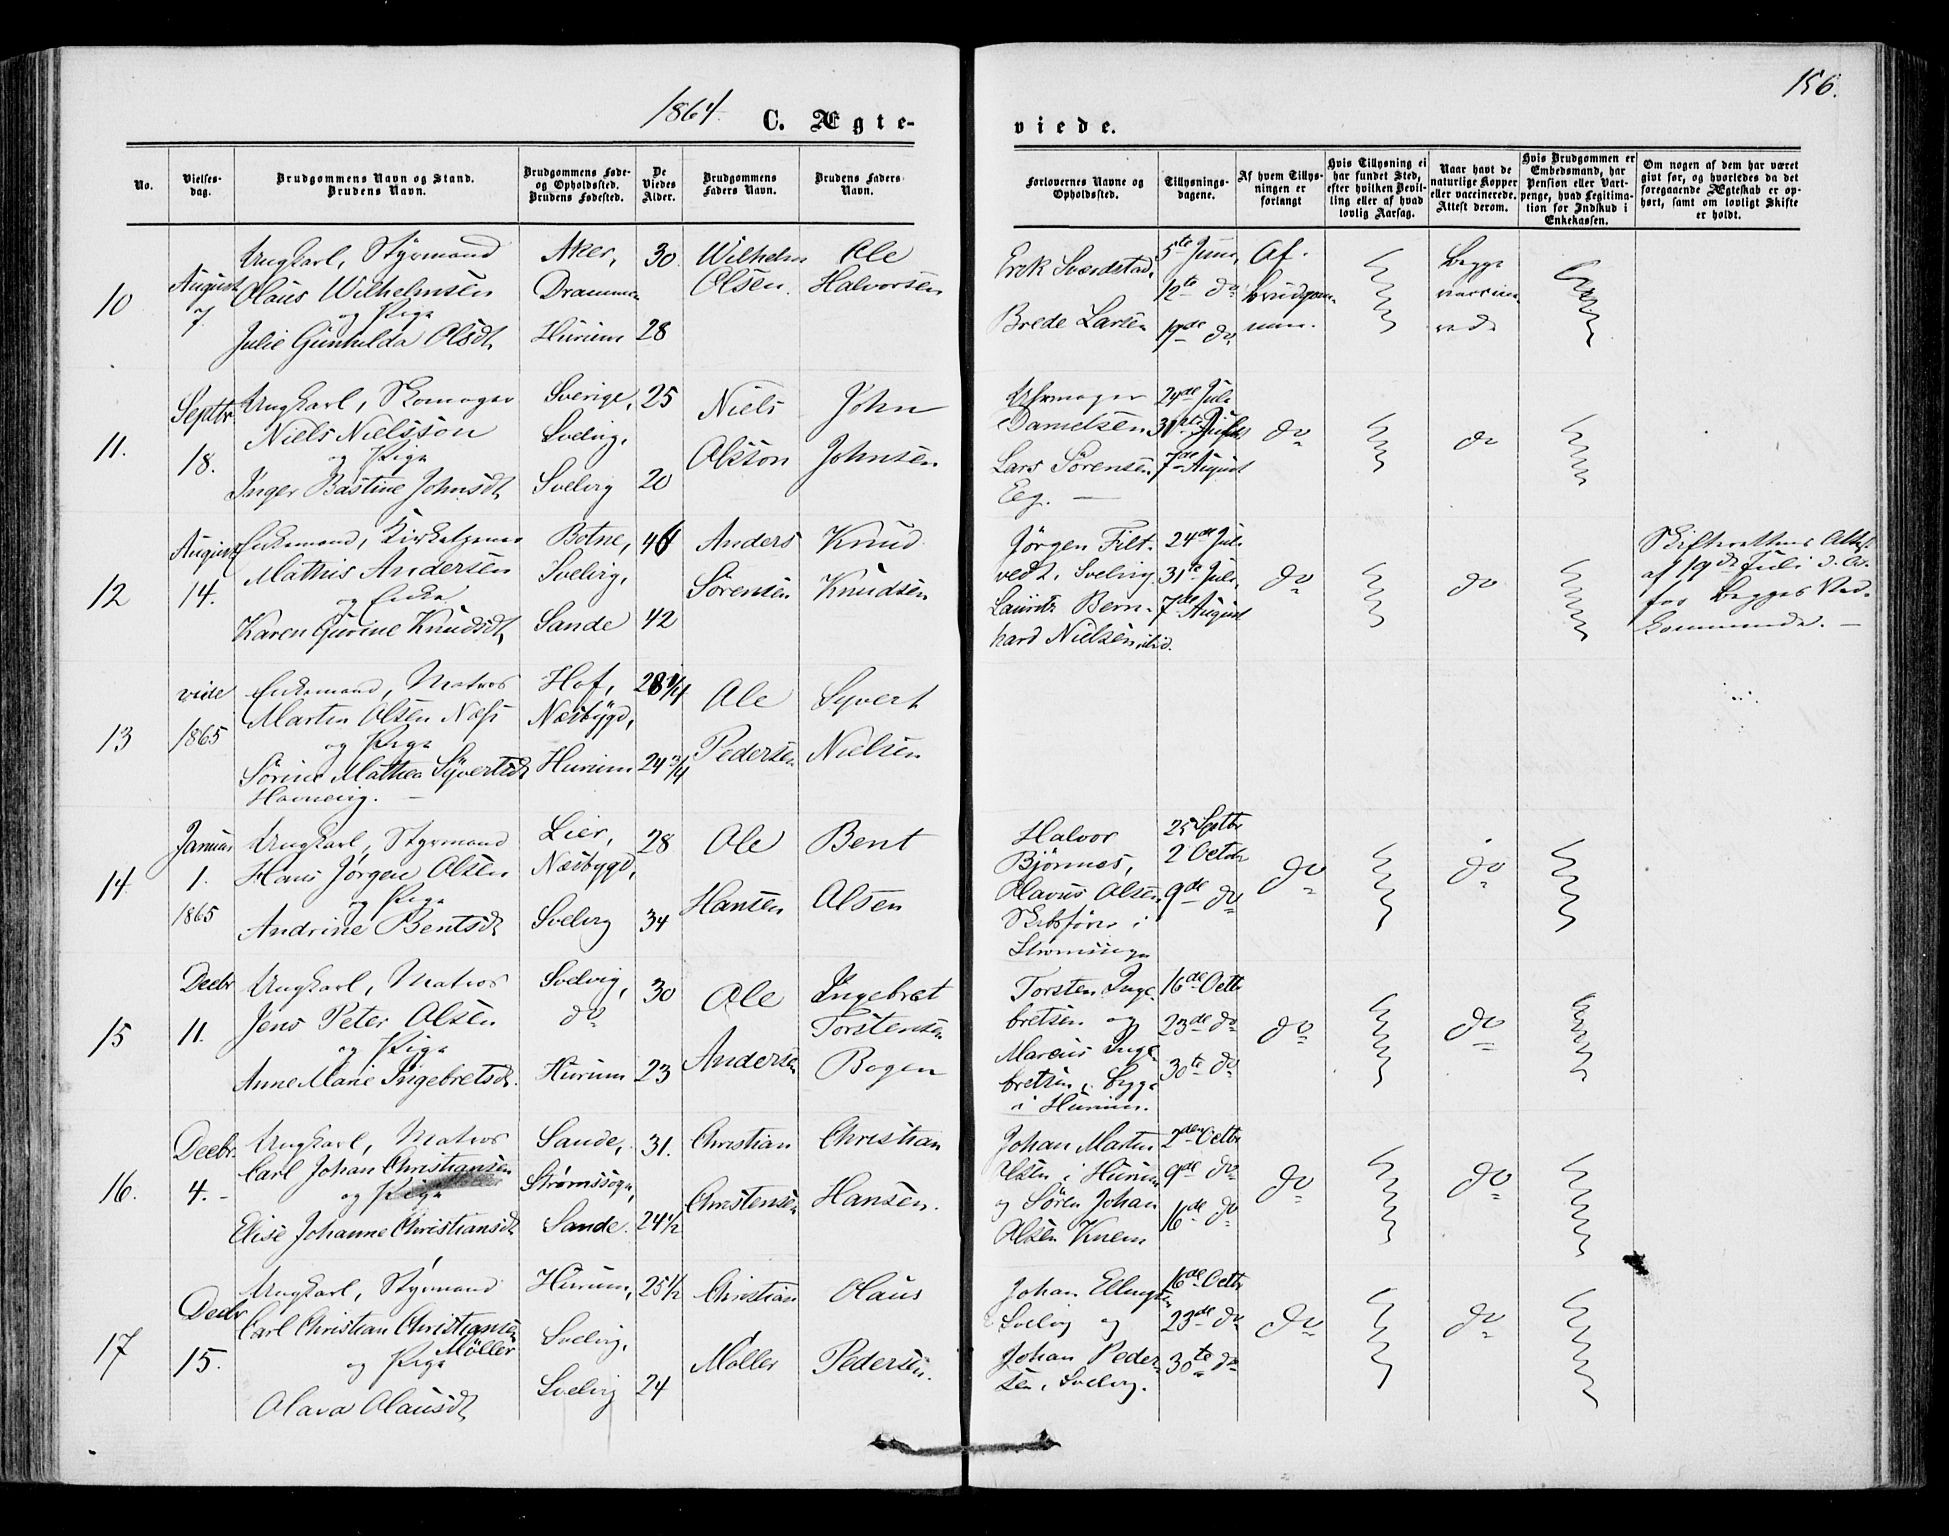 1864.
C. Ægte-
viede.
156.
No.
Vielses-
dag.
Brudgommens Navn og Stand.
Brudens Navn.
Brudgommens Føde-
og Opholdsted.
Brudens Fødested.
De
Viedes
Alder.
Brudgommens
Faders Navn.
Brudens Faders
Navn.
Forlovernes Navne og
Opholdsted.
Tillysnings-
dagene.
Af hvem Tillys-
ningen er
forlangt
Hvis Tillysning ei
har fundet Sted,
efter hvilken Bevil-
ling eller af hvad
lovlig Aarsag.
Naar havt de
naturlige Kopper
eller vaccinerede.
Attest derom.
Hvis Brudgommen er
Embedsmand, har
Pension eller Vart-
penge, hvad Legitima-
tion for Indskud i
Enkekassen.
Om nogen af dem har været
givt før, og hvorledes da det
foregaaende Ægteskab er op-
hørt, samt om lovligt Skifte
er holdt.
10
August
7.
Ungkarl, Styrmand
Olaus Wilhelmsen
og Pige
Julie Gunhilda Olsdt.
Aker,
Drammen
Hurum
30
28
Wilhelm
Olsen.
Ole
Halvorsen
Erik Sværdstad.
Brede Larsen
5te Juni,
12te do
19de do
Af
brudgom-
men.
begge
vaccine-
rede
11.
Septbr
18.
Ungkarl, Skomager
Niels Nielsson
og Pige
Inger Bastine Johnsdt.
Sverige,
Svelvig,
Svelvig
25
20
Niels
Olsson
John
Johnsen
Uhrmager
Danielsen
Lars Sörensen
Eeg. —
24de Juli
31te Juli
7de August
do
do
12
August
14.
Enkemand, Kirketjener
Mathis Andersen
og Enke
Karen Gurine Knudsdt.
Botne,
Svelvig,
Sande
46
42
Anders
Sörensen
Knud
Knudsen
Jörgen Filt-
vedt, Svelvig
Lauritz Bern-
hard Nielsen ibid.
24de Juli
31te Juli,
7de August
do
do
Skifterettens Attest
af 19de Juli d. A.
for begges Ved-
kommende. —
13
vide
1865
Enkemand, Matros
Martin Olsen Næss
og Pige
Sörine Mathea Syvertsdt.
Homevig. —
Hof,
Næsbygd,
Hurum
28 1/4
24 3/4
Ole
Pedersen
Syvert
Nielsen
14
Januar
1.
1865
Ungkarl, Styrmand
Hans Jörgen Olsen
og Pige
Andrine Bentsdt.
Lier,
Næsbygd,
Svelvig
28
34
Ole
Hansen
Bent
Olsen
Halvor
Björnnes,
Olavus Olsen
Skibsförer i
Strömsmyr
25 Septbr
2 Octobr
9de do
do
do
15
Decbr
11.
Ungkarl, Matros
Jens Peter Olsen
og Pige
Anne Marie Ingebretsdt.
Svelvig,
do
Hurum
30
23
Ole
Andersen
Ingebret
Torstensen
Bogen
Torsten Inge-
bretsen og
Marcus Inge-
bretsen, begge
i Hurum.
16de Octbr
23de do
30te do
do
do
16.
Decbr.
4. -
Ungkarl, Matros
Carl Johan Christiansen
og Pige
Elise Johanne Christiansdt.
Sande,
Strømssogn,
Sande.
31.
24 1/2
Christian
Christensen
Christian
Hansen.
Johan Martin
Olsen i Hurum
og Sören Johan
Olsen Knem
2den Octbr
9de do
16de do
do
do
17
Decbr
15.
Ungkarl, Styrmand
Carl Christian Christiansen
Möller
og Pige
Olava Olausdt.
Hurum,
Svelvig,
Svelvig
25 1/2
24
Christian
Möller
Olaus
Pedersen.
Johan Ellingsen
Svelvig og
Johan Peder-
sen, Svelvig.
16de Octbr
23de do
30te do
do
do